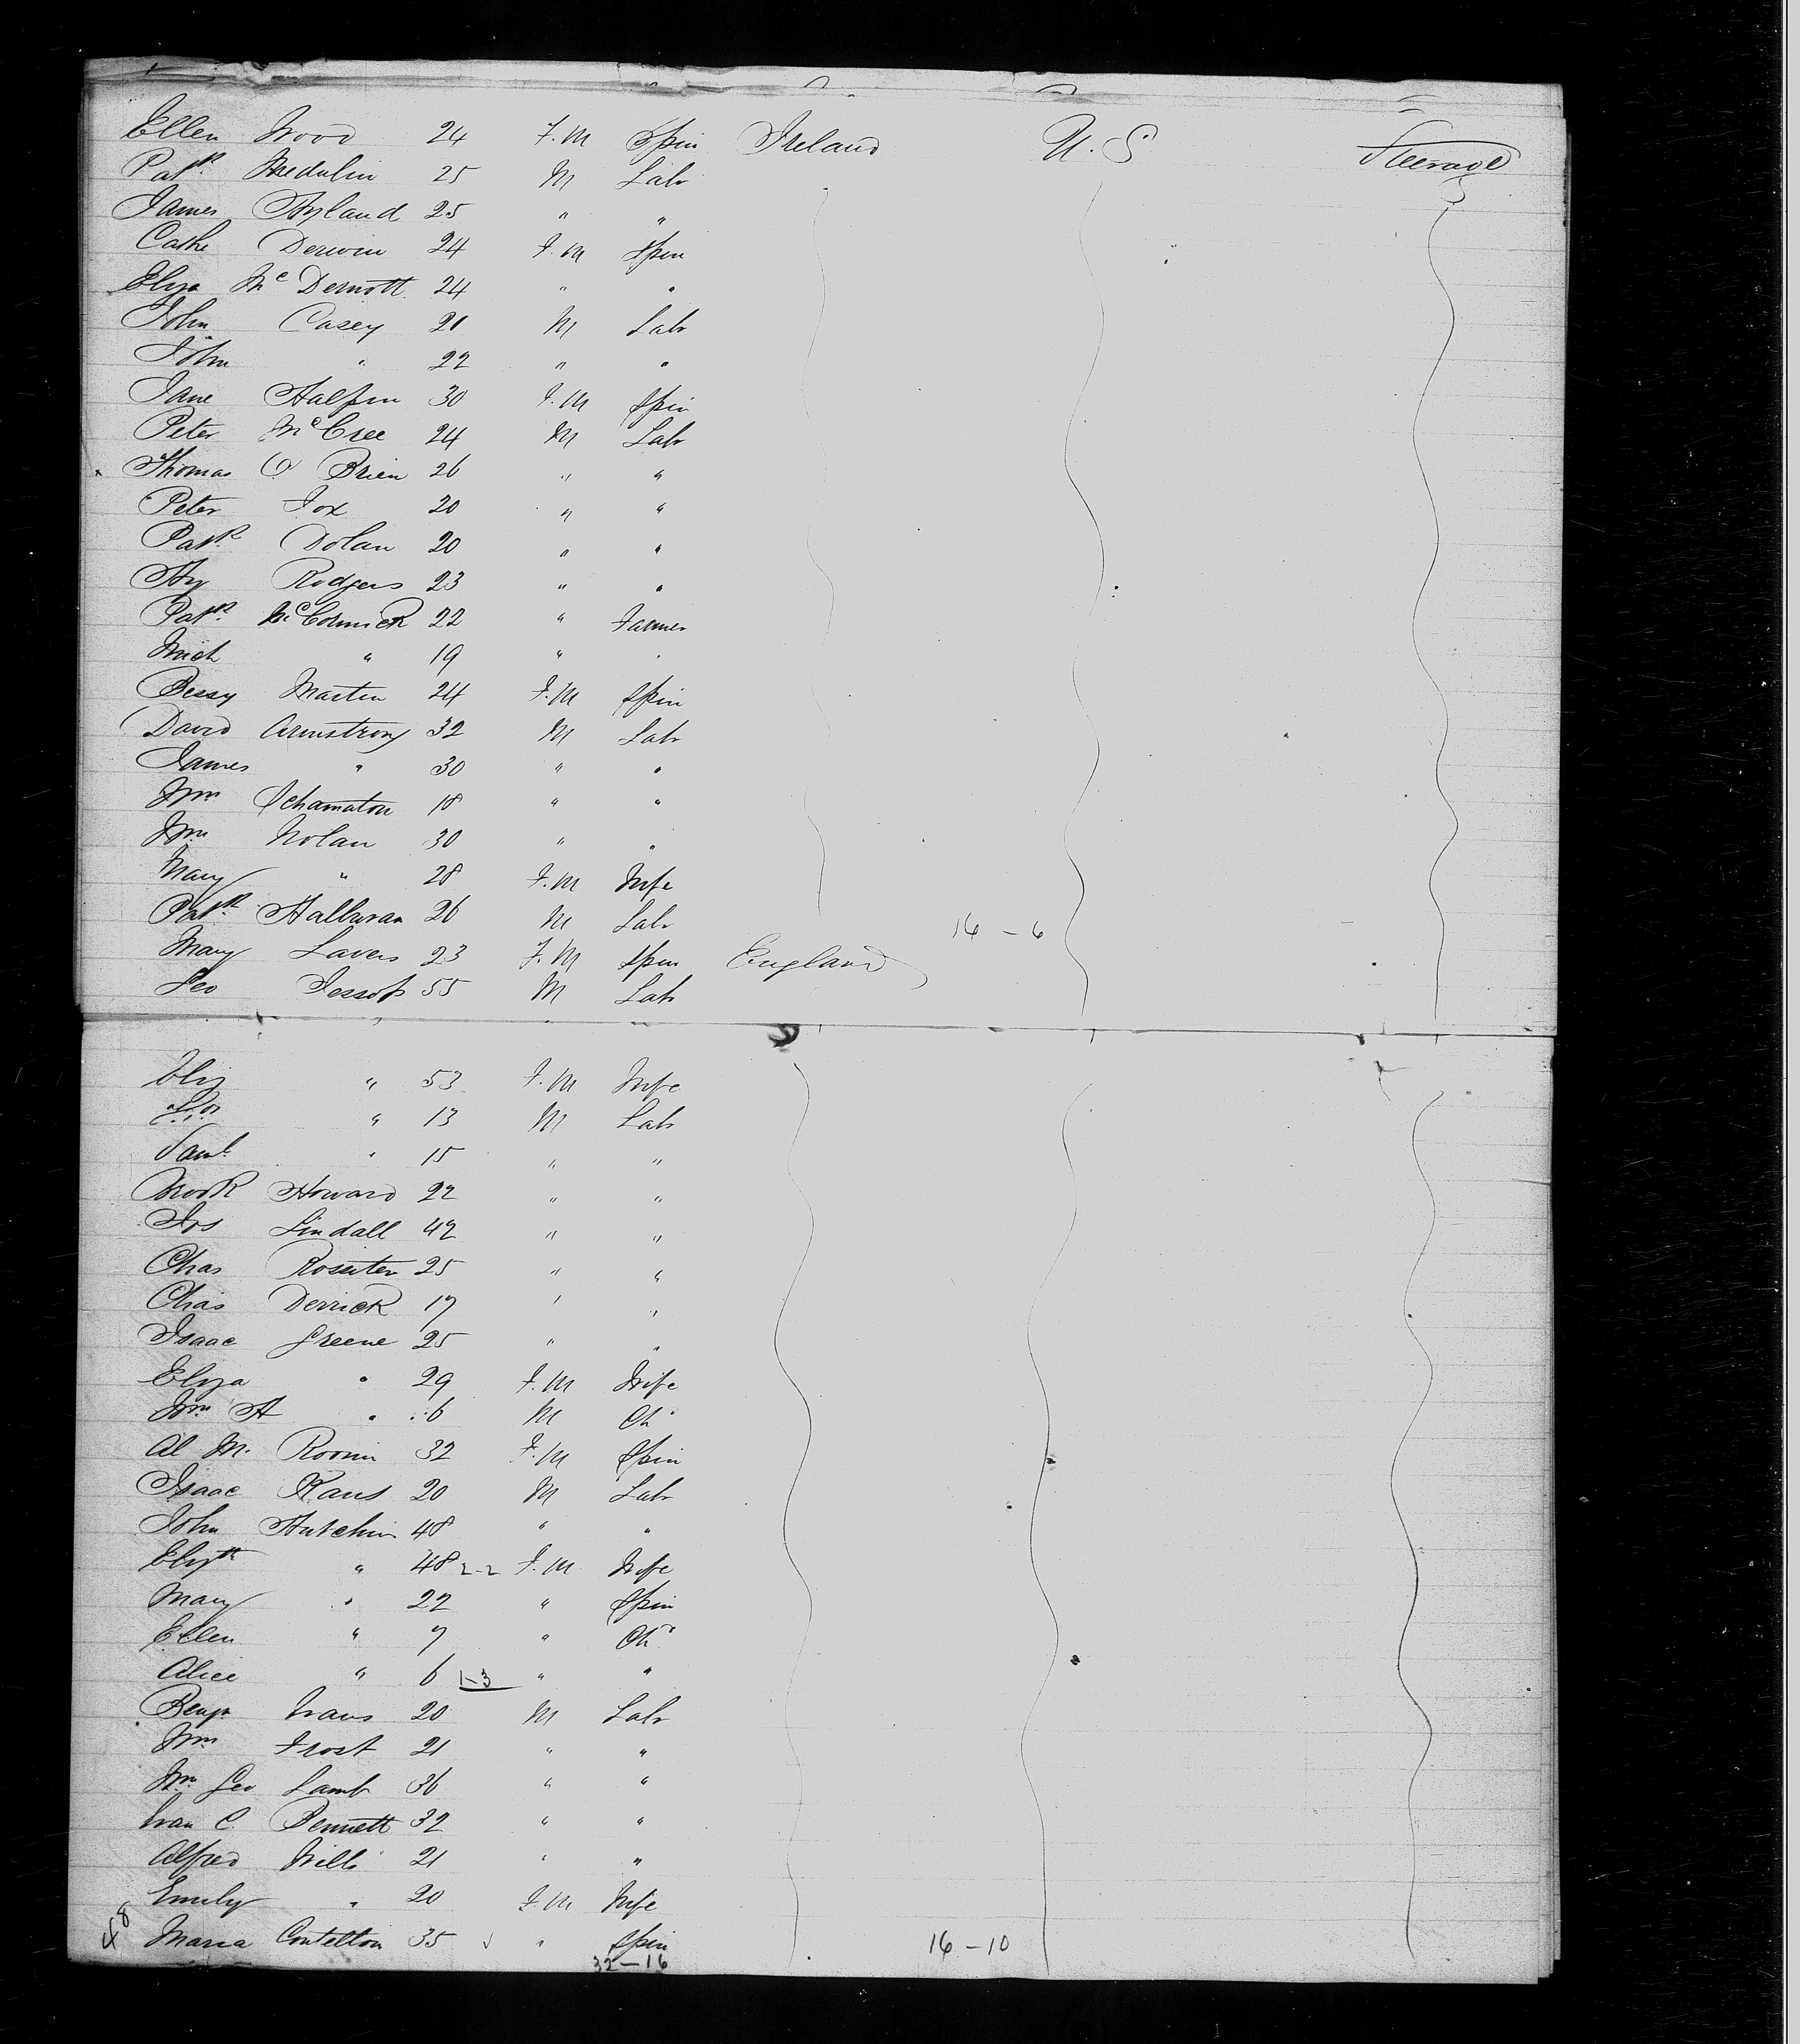 Ellen Wood 24 F.M Spin Ireland U.S Steerage
Patk. Medulin 25 M Labr
James Hyland 25 " "
Cathe Derwin 24 F.M Spin
Eliza McDermott 24 " "
John Casey 21 M Labr
John " 22 " "
Jane Halpin 30 F.M Spin
Peter McCree 24 M Labr
Thomas O Brien 26 " "
Peter Fox 20 " "
Patk. Dolan 20 " "
Hy Rodgers 23 " "
Patk. McCormick 22 " Farmer
Mich " 19 " "
Bessy Martin 24 F.M Spin
David Armstrong 32 M Labr
James " 30 " "
Wm Schamaton 18 " "
Wm Nolan 30 " "
Mary " 28 F.M Wife
Patk. Halluran 26 M Labr 16-6
Mary Lavers 23 F.M Spin England
Geo Jessop 55 M Labr
Eliz " 53 F.M Wife
" 13 M Labr
Saml. " 15 " "
Howard 22 " "
Jos Lindall 42 " "
Chas Rossiter 25 " "
Chas Derrick 17 " "
Isaac Greene 25 " "
Eliza " 29 F.M Wife
Wm H " 6 M Ch
Al M. Roomin 32 F.M Spin
Isaac Kaus 20 M Labr
John Hutchin 48 " "
Elizth " 48 2-2 F.M Wife
Mary " 22 " Spin
Ellen " 7 " Ch
Alice " 6 1-3 " "
Benjn 20 M Labr
Wm Frost 21 " "
Wm Geo Lamb 36 " "
C. Bennett 32 " "
Alfred Wills 21 " "
Emily " 20 F.M Wife
48 Maria Contelton 35 " Spin 16-10
32-16